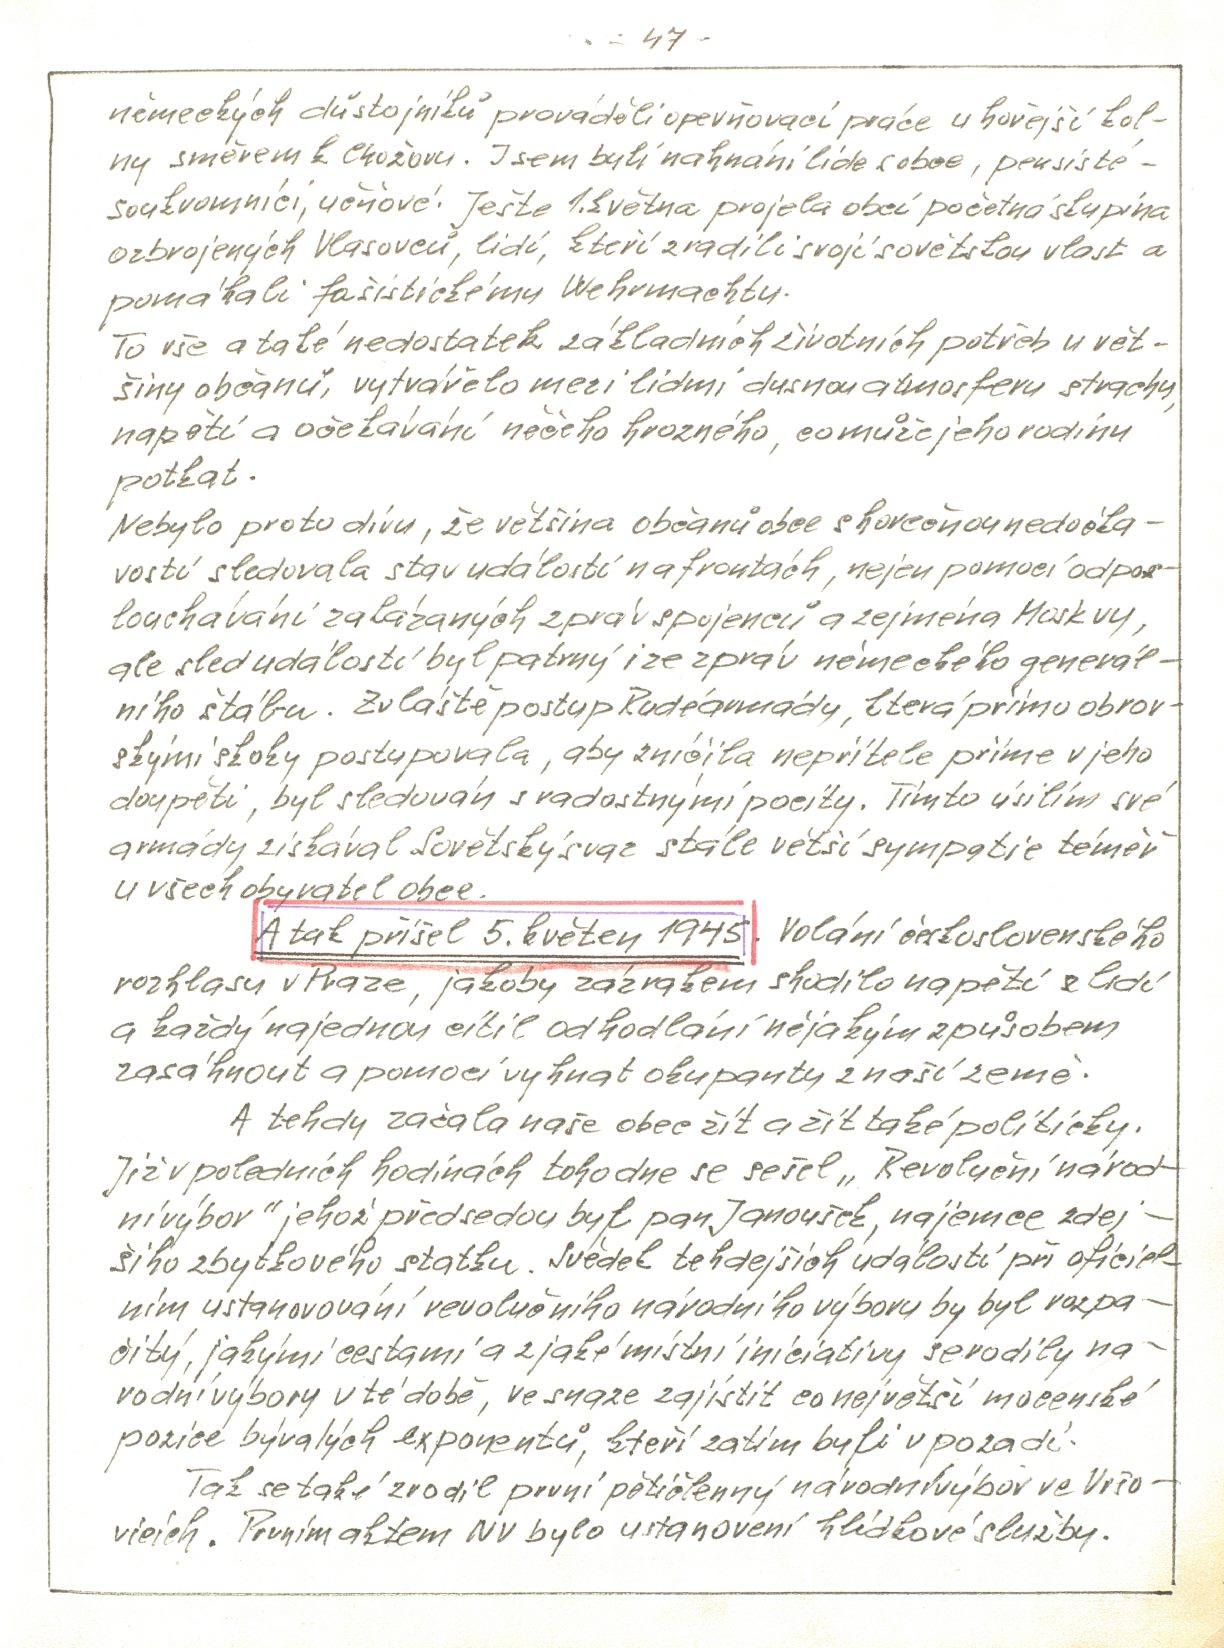 - 47 -
německých důstojníků prováděli opevňovací práce u hořejší kol-
ny směrem k Chožovu. Jsem byli nahnáni lidé s obce, pensisté -
soukromníci, učňové. Ješte 1. května projela obcí početná skupina
ozbrojených Vlasovců, lidí, kteří zradili svoji sovětskou vlast a
pomáhali fašistickému Wehrmachtu.
To vše a také nedostatek základních životních potřeb u vět-
šiny občanů, vytvářelo mezi lidmi dusnou atmosferu strachu,
napětí a očekávání něčeho hrozného, co může jeho rodinu
potkat.
Nebylo proto divu, že většina občanů obce s horečnou nedočka-
vostí sledovala stav událostí na frontách, nejen pomocí odpos-
louchávání zakázaných zpráv spojenců a zejména Moskvy,
ale sled událostí byl patrný i ze zpráv německého generál-
ního štábu. Zvláště postup Rudé armády, která přímo obrov-
skými skoky postupovala, aby zničila nepřítele přímo v jeho
doupěti, byl sledován s radostnými pocity. Tímto úsilím své
armády získával Sovětský svaz stále větší sympatie téměř
u všech obyvatel obce.
A tak přišel 5. květen 1945. Volání československého
rozhlasu v Praze, jakoby zázrakem shodilo napětí z lidí
a každý najednou cítil odhodlání nějakým způsobem
zasáhnout a pomoci vyhnat okupanty z naší země.
A tehdy začala naše obec žít a žít také politicky.
Již v poledních hodinách tohodne se sešel „Revoluční národ-
ní výbor" jehož předsedou byl pan Janoušek, nájemce zdej-
šího zbytkového statku. Svědek tehdejších událostí při oficiel-
ním ustanovování revolučního národního výboru by byl rozpa-
čitý, jakými cestami a z jaké místní iniciativy se rodily ná-
rodní výbory v té době, ve snaze zajistit co největší mocenské
pozice bývalých exponentů, kteří zatím byli v pozadí.
Tak se také zrodil první pětičlenný národní výbor ve Vršo-
vicích. Prvním aktem NV bylo ustanovení hlídkové služby.